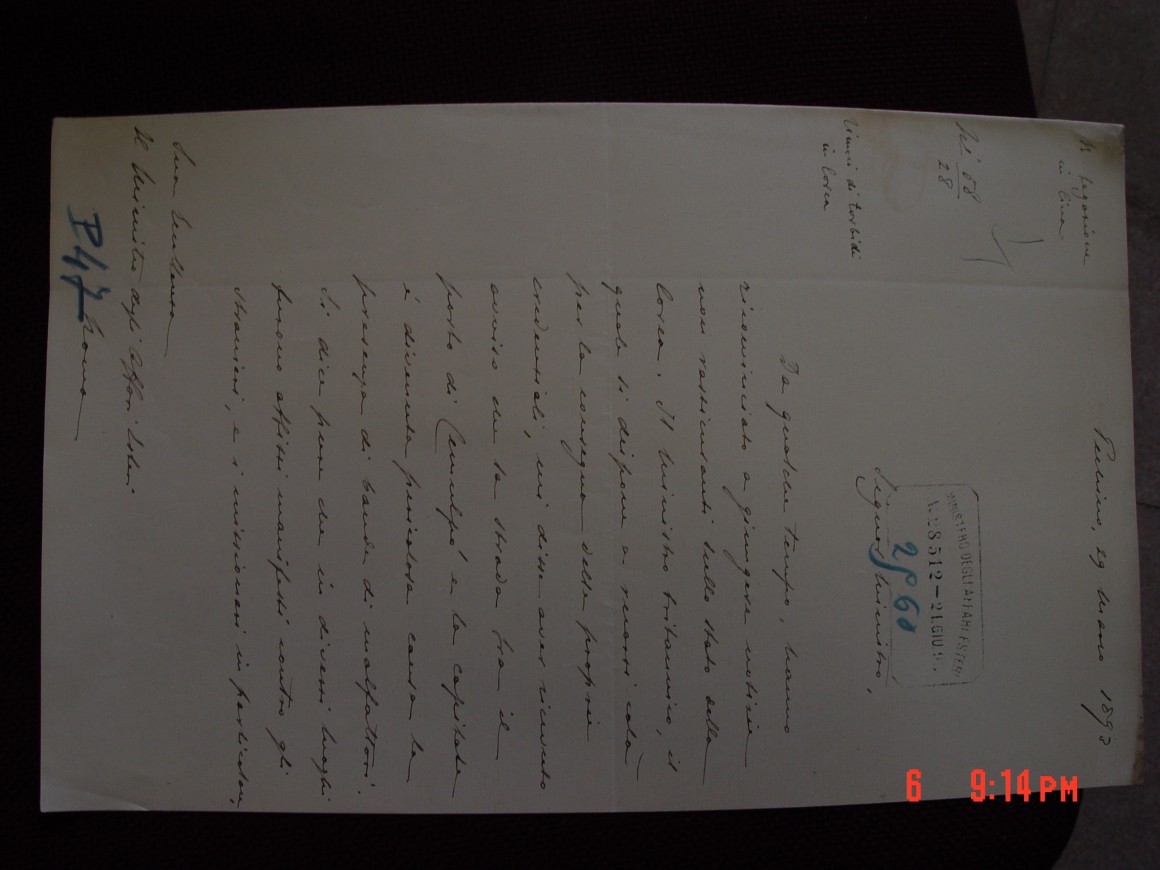 R. Legazione
in Cina
Pechino, 29 Marzo 1893
28
Timori di torbidi
in Corea
MINISTERO DEGLI AFFARI ESTERI
28512-21.GIU
Signor Ministro,
Da qualche tempo, hanno
ricominciato a giungere notizie
non rassicuranti sullo stato della
Corea. Il Ministro britannico, il
quale si dispone a recarsi colà
per la consegna delle proprie
credenziali, mi disse aver ricevuto
avviso che la strada fra il
porto di Cemulpò e la capitale
è divenuta pericolosa causa la
presenza di bande di malfattori.
Si dice pure che in diversi luoghi
furono affissi manifesti contro gli
stranieri, e i missionari in particolare,
Sua Eccellenza
Il Ministro degli Affari Esteri
Roma
P47
6 9:14PM